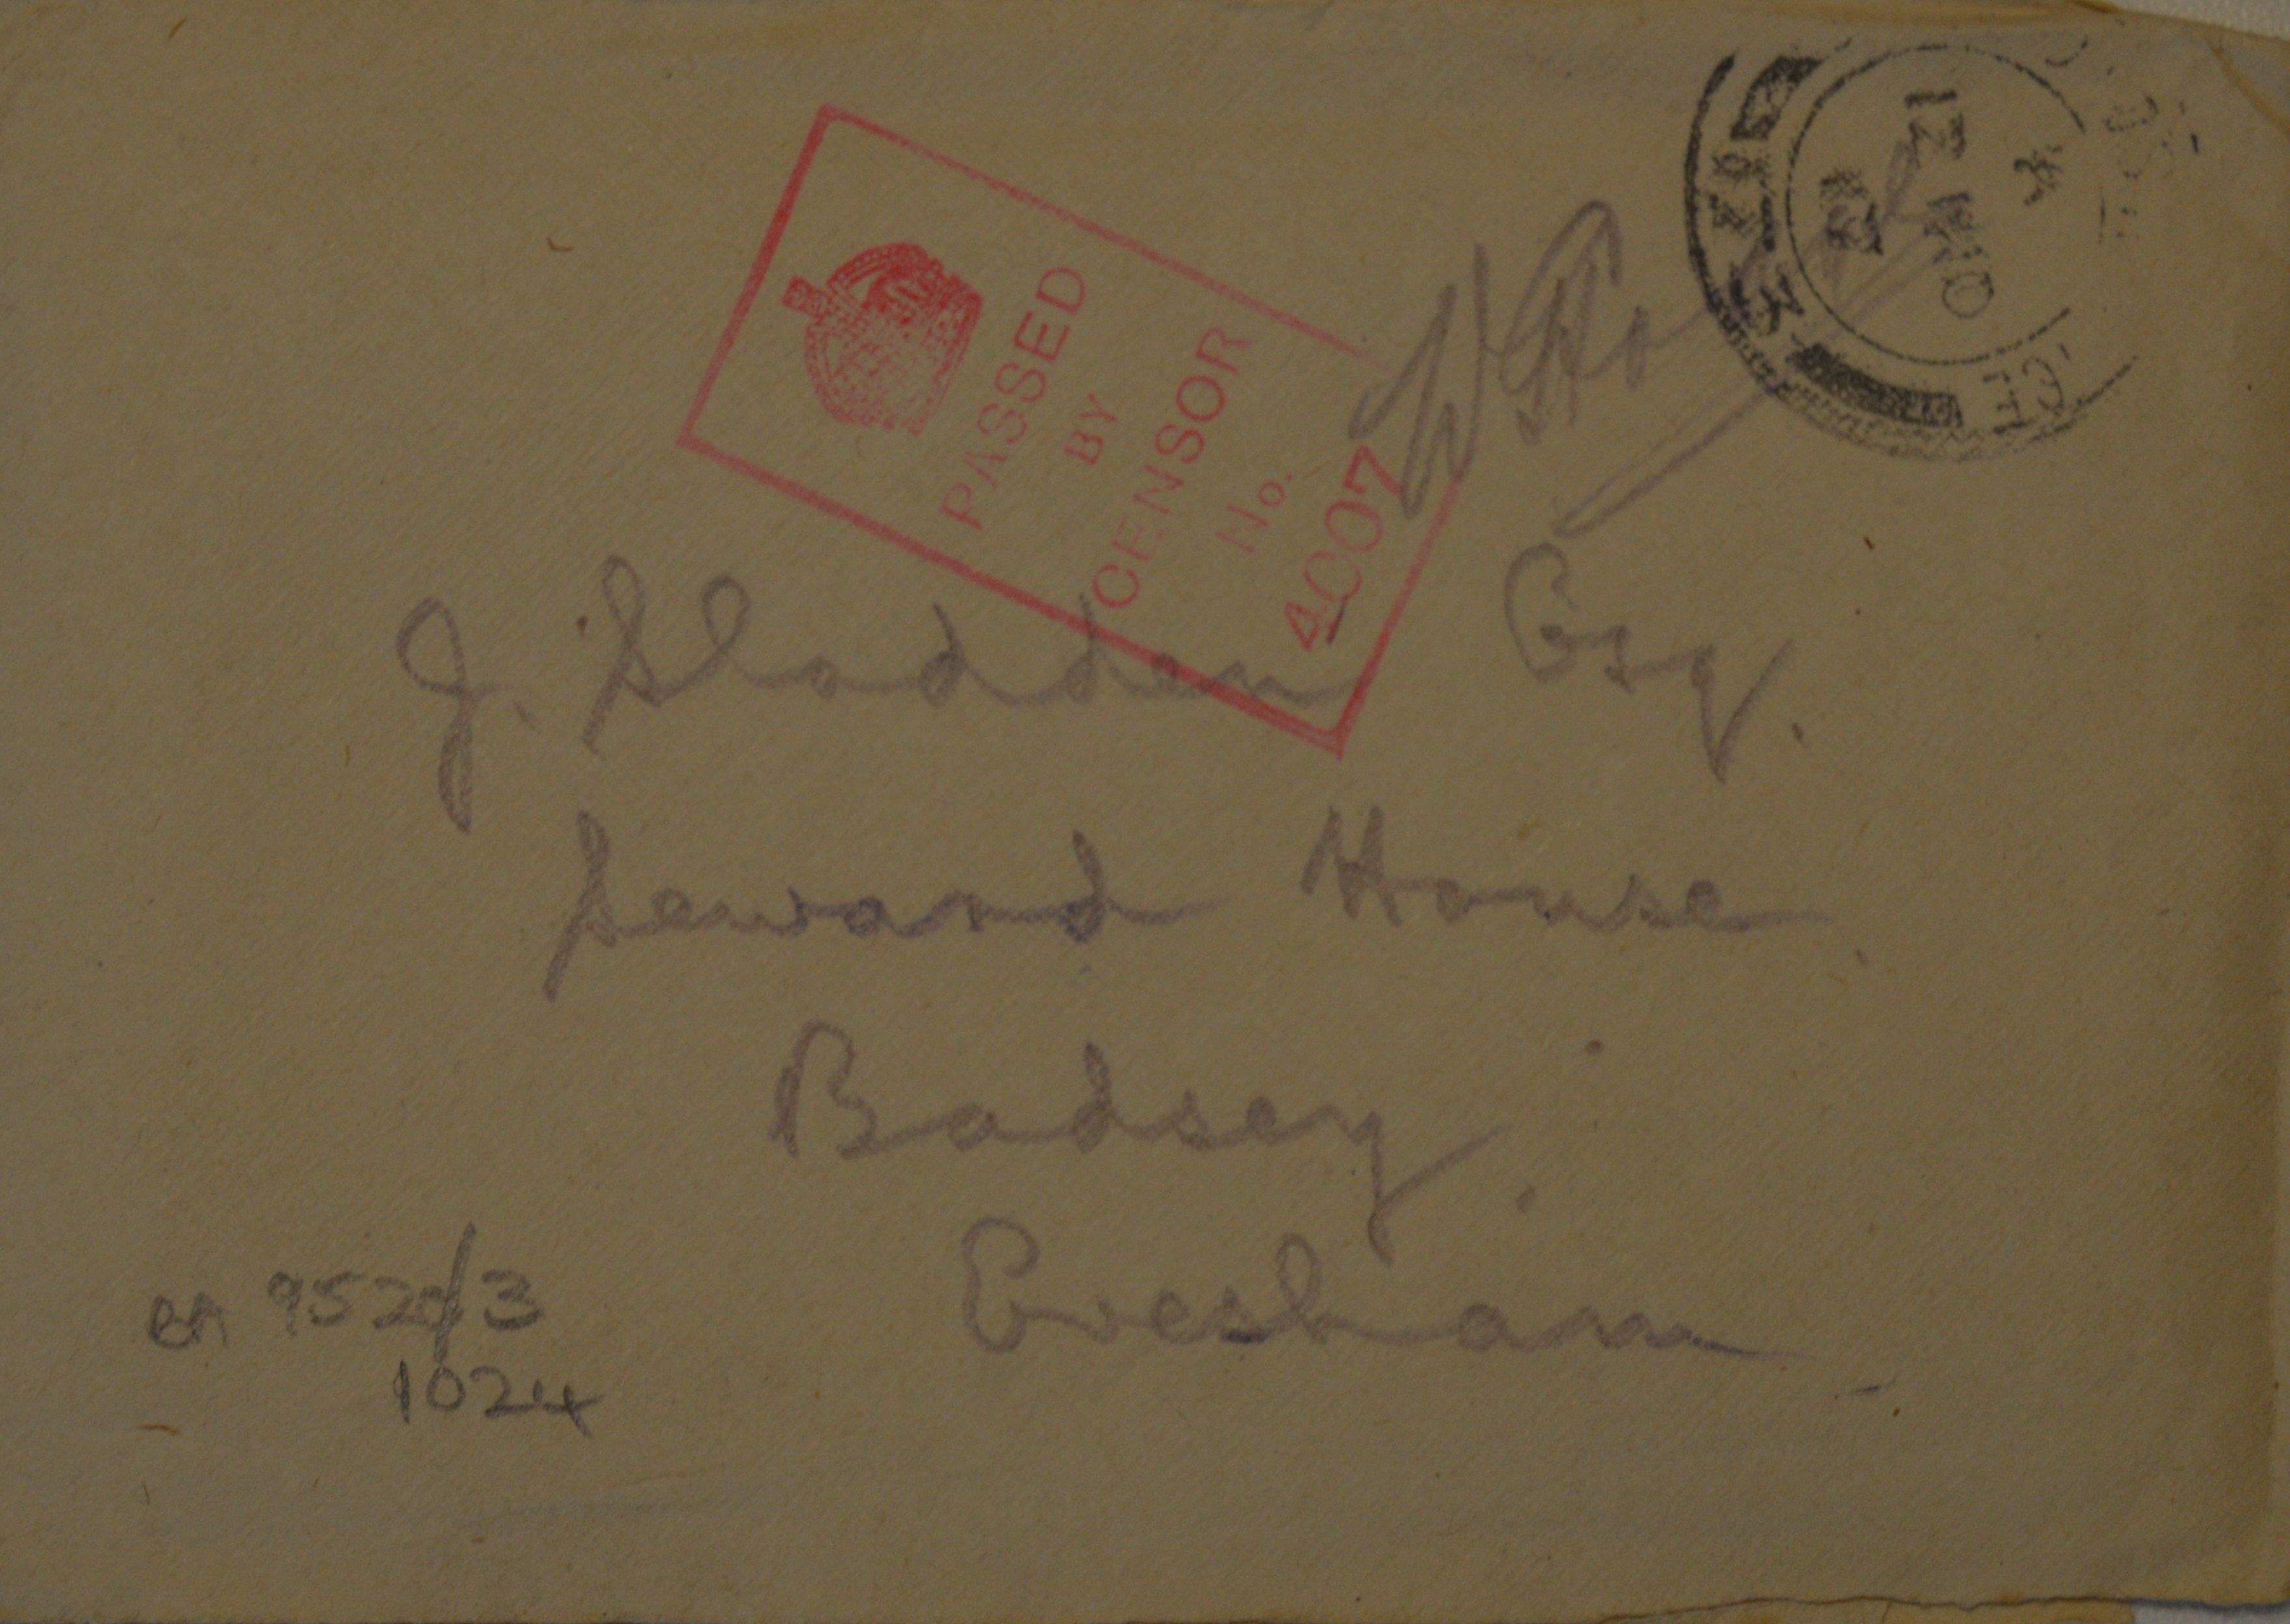 PASSED
BY
CENSOR
No.
4007
J. Sladden Esq.
Seward House.
Badsey.
Evesham
BA 9520/3
1024